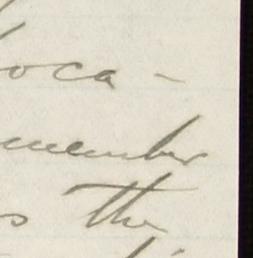 oca-
member
s the